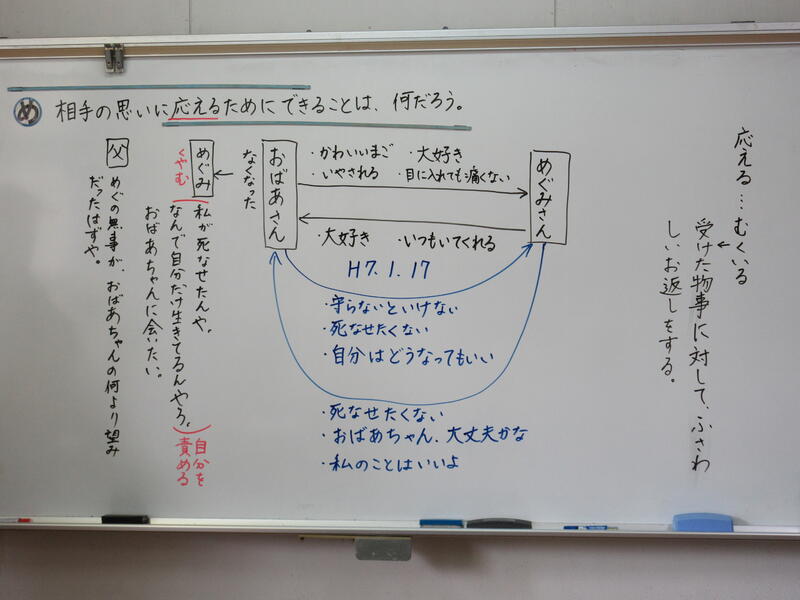 め 相手の思いに応えるためにできることは、何だろう。
応える…むくいる
受けた物事に対して、ふさわ
しいお返しをする。
めぐみさん
・かわいいまご ・大好き
・いやされる ・目に入れても痛くない
・大好き ・いつもいてくれる
H7.1.17
・守らないといけない
・死なせたくない
・自分はどうなってもいい
・死なせたくない
・おばあちゃん、大丈夫かな
・私のことはいいよ
おばあさん
なくなった
めぐみ
くやむ
私が死なせたんや。
なんで自分だけ生きてるんやろ。
自分を
責める
おばあちゃんに会いたい。
父
めぐの無事が、おばあちゃんの何より望み
だったはずや。